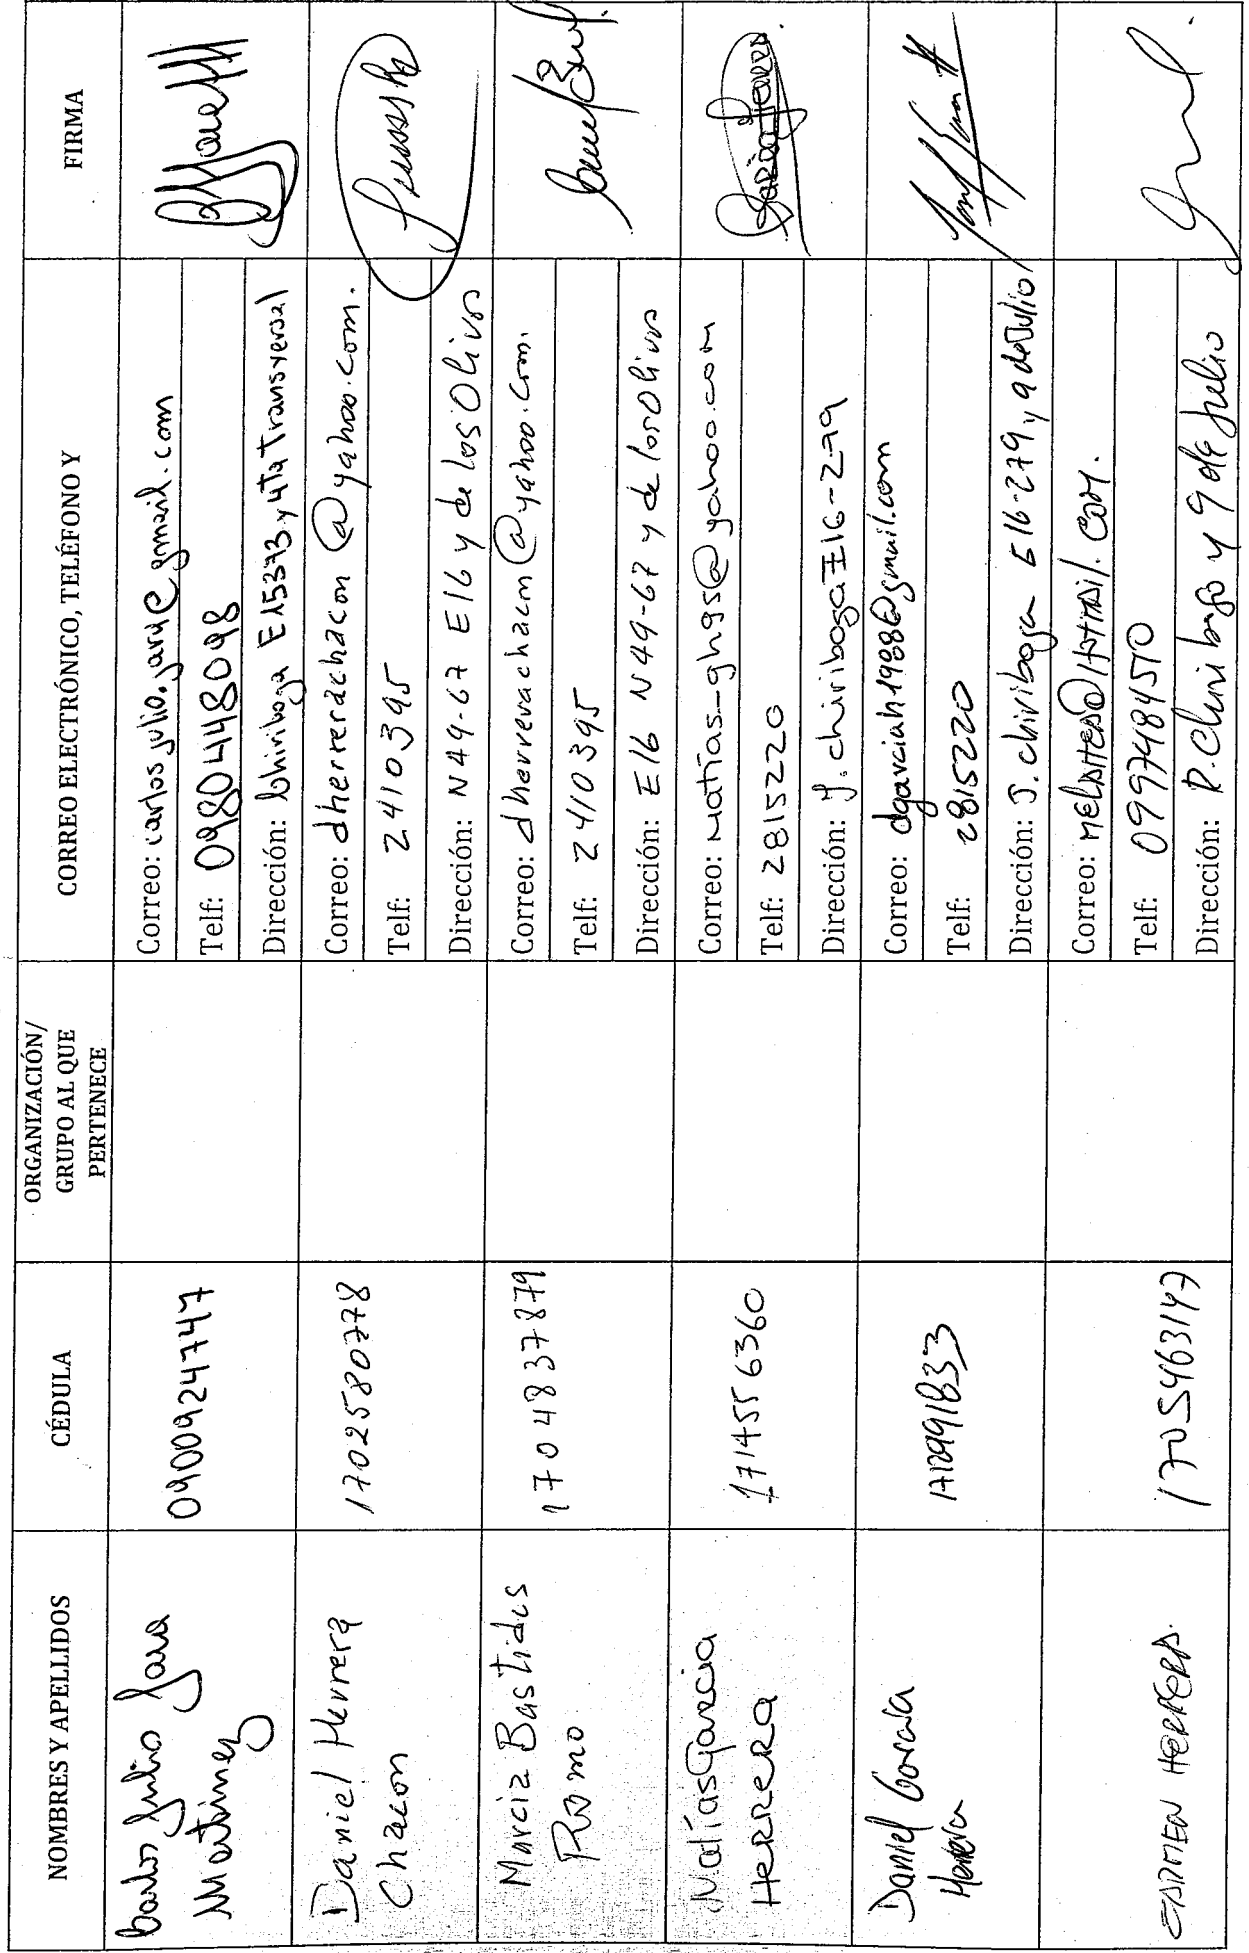 NOMBRES Y APELLIDOS
CÉDULA
ORGANIZACIÓN/
GRUPO AL QUE
PERTENECE
CORREO ELECTRÓNICO, TELÉFONO Y
FIRMA
Carlos Julio Jara
Martinez
0900924747
Correo: carlosjulio.jara@gmail.com
Telf: 0980448098
Dirección: Chiriboga E15373 y 4ta Transversal
Daniel Herrera
Chacon
1702580778
Correo: dherrerachacon@yahoo.com.
Telf: 2410395
Dirección: N49-67 E16 y de los Olivos
Marcia Bastidas
Romo
1704837879
Correo: dherrerachacon@yahoo.com.
Telf: 2410395
Dirección: E16 N49-67 y de los Olivos
Matías García
Herrera
1714556360
Correo: Matías_gh95@yahoo.com
Telf: 2815220
Dirección: J. chiriboga E16-279
Daniel García
Herrera
Correo: dgarciah1988@gmail.com
Telf: 2815220
Dirección: J. chiriboga E16-279 y 9 de Julio
CARMEN HERRERA.
1705463147
Correo:
Telf: 0997484570
Dirección: R. Chiriboga y 9 de Julio